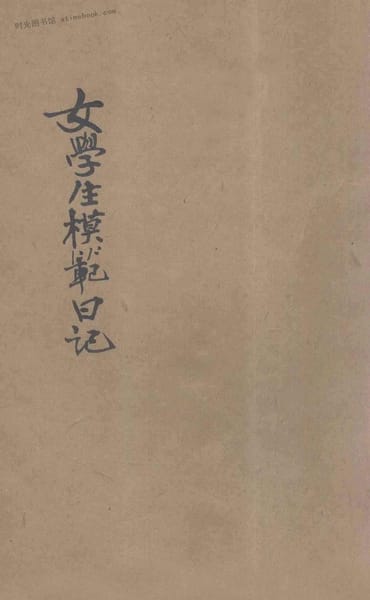 时光图书馆 atimebook.com
女學生模範日记